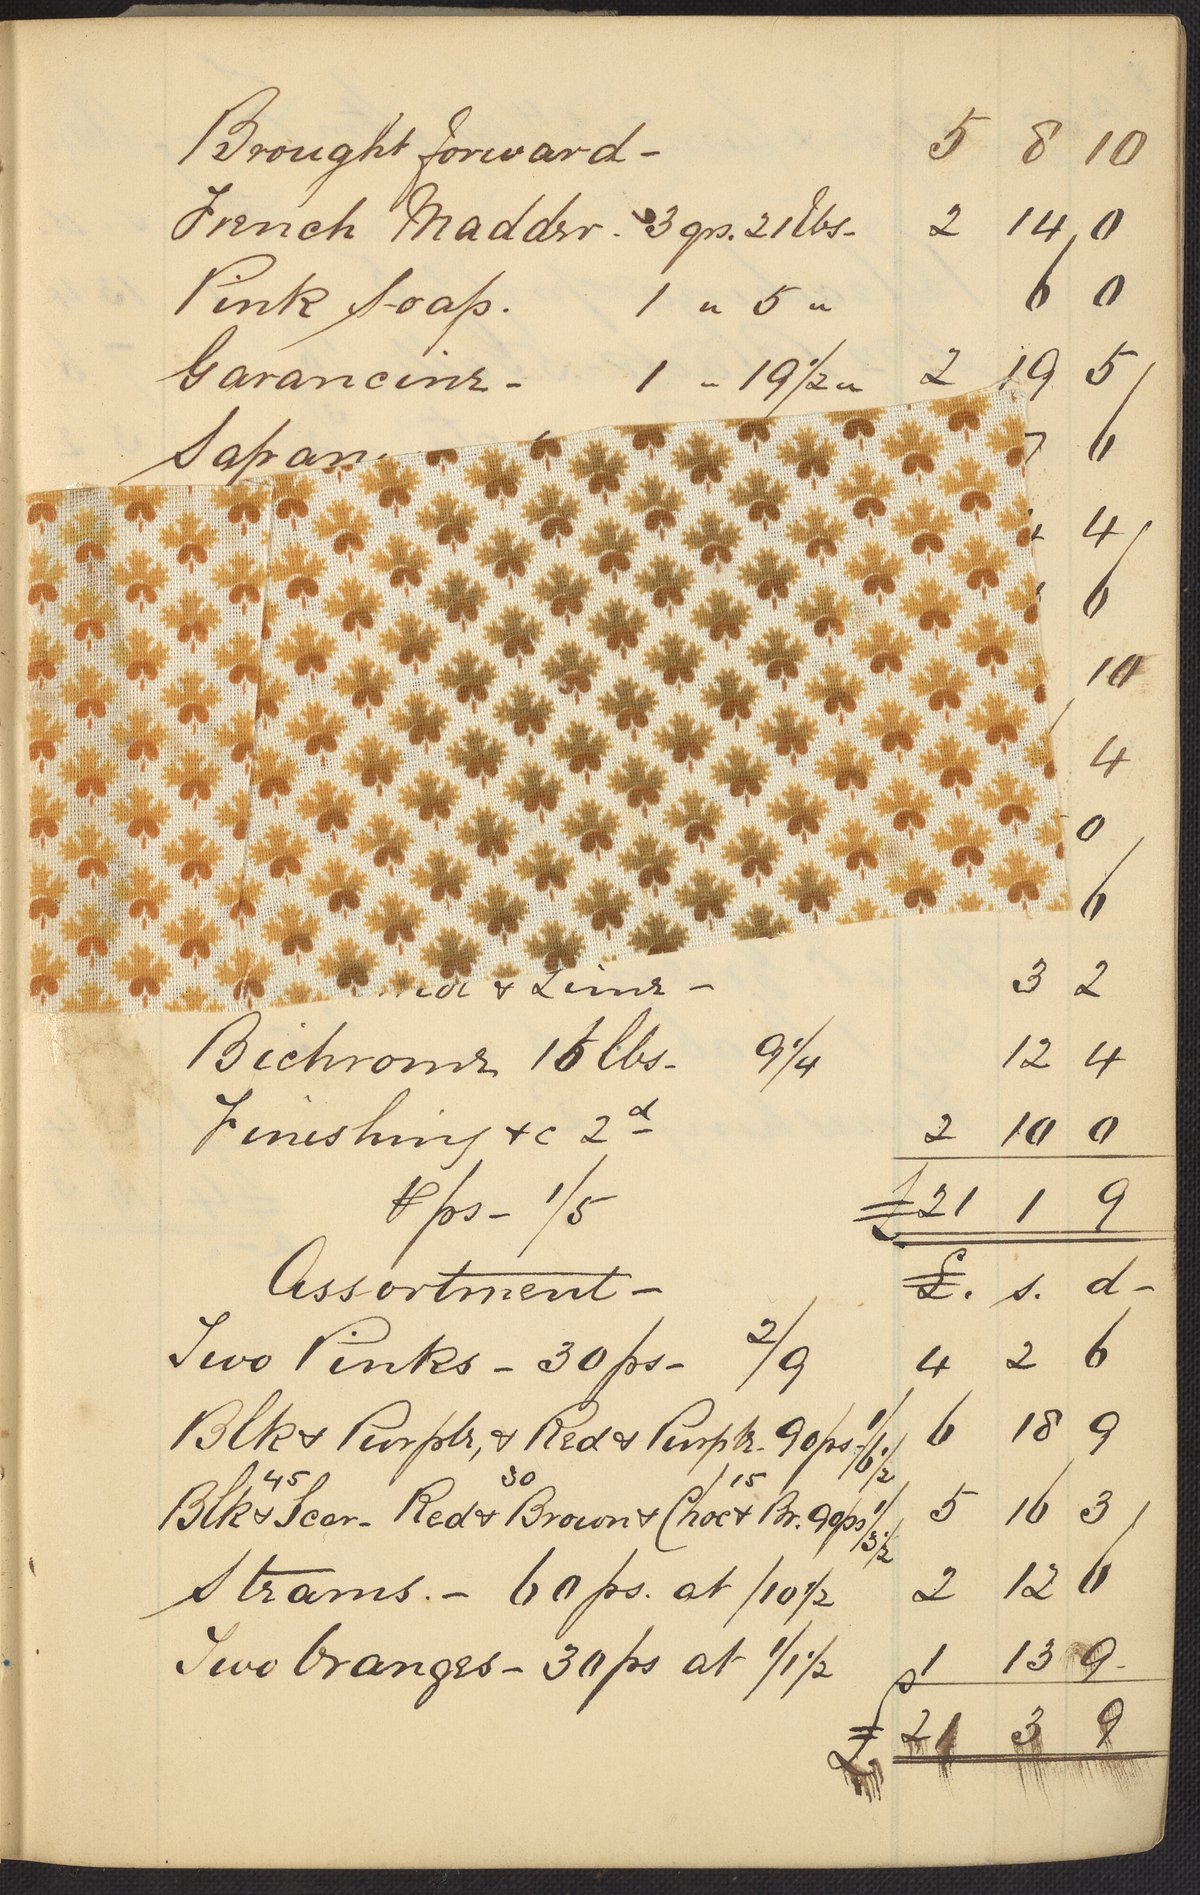 Brought forward - 5 8 10
French Madder. 3 qrs. 21 lbs. 2 14 0
Pink Soap. 1 " 5 " 6 0
Garancine - 1 " 19 1/2 " 2 19 5
Sapan 7 6
4
6
10
4
0
6
& Lime - 3 2
Bichrome 16 lbs. 9 1/4 12 4
Finishing &c 2d 2 10 0
ps - 1/5 £21 1 9
Assortment - £. s. d -
Two Pinks - 30 ps - 2/9 4 2 6
Blk & Purple, & Red & Purple. 90 ps - 1/6 1/2 6 18 9
45 30 15
Blk & Scar - Red & Brown & Choc & Br. 90 ps 1/3 1/2 5 16 3
Strams. - 60 ps. at /10 1/2 2 12 6
Two Oranges - 30 ps at 1/1 1/2 1 13 9
£ 21 3 9